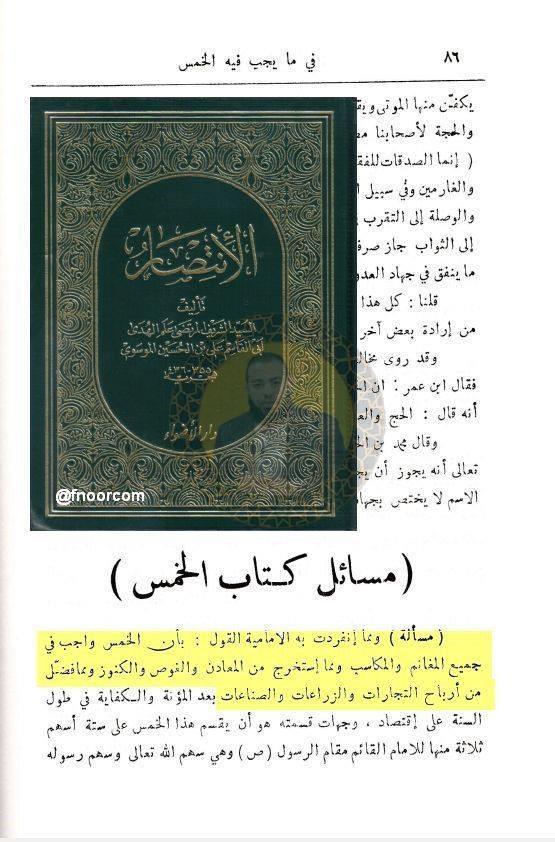 في ما يجب فيه الخمس
٨٦
يكفّن منها الموتى
والحجة لأصحابنا
( إنما الصدقات للفق
والغارمين وفي سبيل
والوصلة إلى التقرب
إلى الثواب جاز صرف
ما ينفق في جهاد العدو
قلنا : كل هذا
من إرادة بعض آخر
وقد روى مخال
فقال ابن عمر : ان
أنه قال : الحج والع
وقال محمد بن الح
تعالى أنه يجوز أن يج
الاسم لا يختص بجها
الأنتصار
تأليف
السيد الشريف المرتضى علم الهدى
أبي القاسم علي بن الحسين الموسوي
٣٥٥-٤٣٦
دار الأضواء
@fnoorcom
( مسائل كتاب الخمس )
( مسألة ) ومما إنفردت به الامامية القول : بأن الخمس واجب في
جميع المغانم والمكاسب ومما إستخرج من المعادن والغوص والكنوز ومما فضل
من أرباح التجارات والزراعات والصناعات بعد المؤنة والكفاية في طول
السنة على إقتصاد ، وجهات قسمته هو أن يقسم هذا الخمس على ستة أسهم
ثلاثة منها للامام القائم مقام الرسول (ص) وهي سهم الله تعالى وسهم رسوله